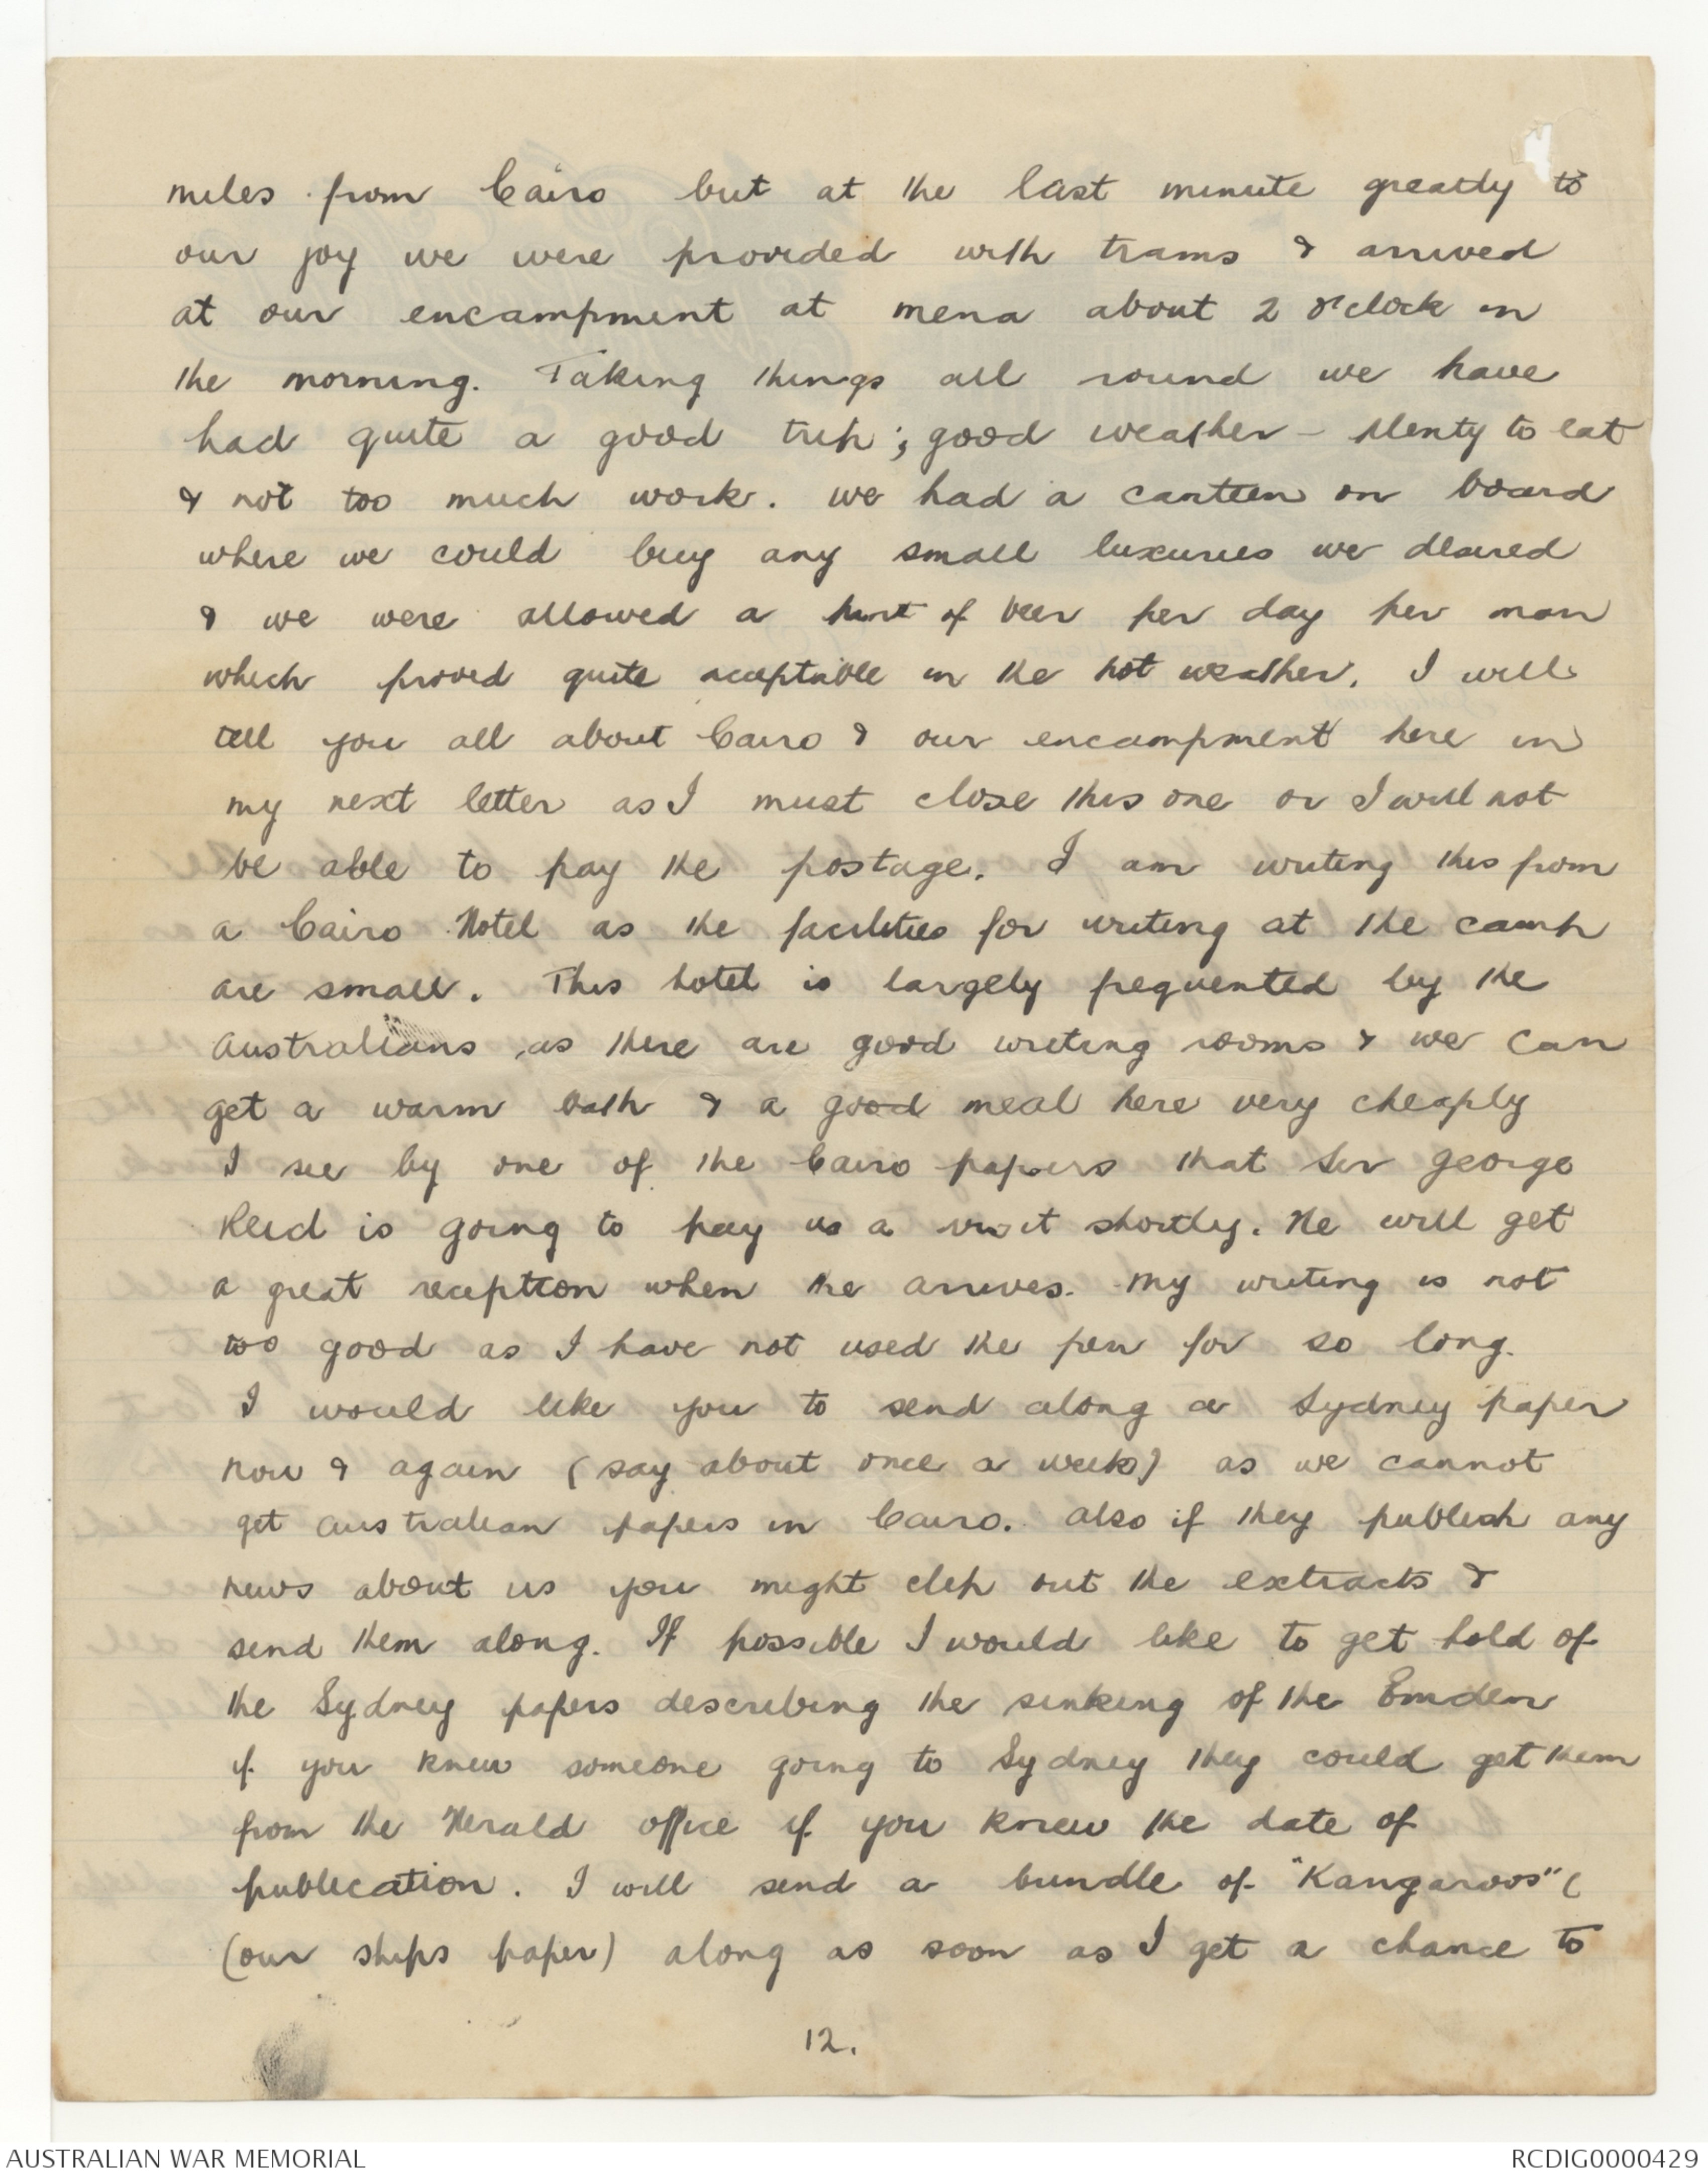 miles from Cairo but at the last minute greatly to
our joy we were provided with trams & arrived
at our encampment at mena about 2 o'clock in
the morning. Taking things all round we have
had quite a good trip; good weather - plenty to eat
& not too much work. We had a canteen on board
where we could buy any small luxuries we desired
& we were allowed a pint of beer per day per man
which proved quite acceptable in the hot weather. I will
tell you all about Cairo & our encampment here in
my next letter as I must close this one or I will not
be able to pay the postage. I am writing this from
a Cairo Hotel as the facilities for writing at the camp
are small. This hotel is largely frequented by the
Australians, as there are good writing rooms & we can
get a warm bath & a good meal here very cheaply
I see by one of the Cairo papers that Sir George
Reid is going to pay us a visit shortly. He will get
a great reception when he arrives. My writing is not
too good as I have not used the pen for so long.
I would like you to send along a Sydney paper
now & again (say about once a week) as we cannot
get Australian papers in Cairo. Also if they publish any
news about us you might clip out the extracts &
send them along. If possible I would like to get hold of
the Sydney papers describing the sinking of the Emden
if you knew someone going to Sydney they could get them
from the Herald office if you knew the date of
publication. I will send a bundle of "Kangaroos" (
(our ships paper) along as soon as I get a chance to
12.
AUSTRALIAN WAR MEMORIAL
RCDIG0000429